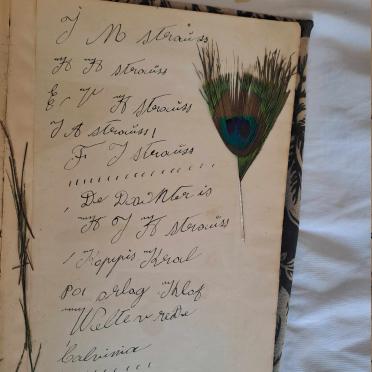 J M straŭss
H H straŭss
E. V H straŭss
J A straŭss
F J straŭss
De Dochter is
H J H straŭss
Koppis Kraal
Pos orlog Klof
Weltevrede
Calvinia